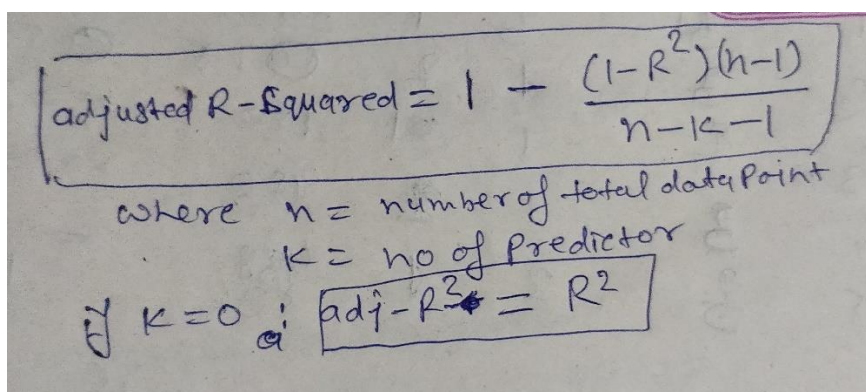 adjusted R-Squared = 1 - (1-R²)(n-1) / n-k-1
where n = number of total data Point
k = no of Predictor
if k=0 ; adj-R² = R²